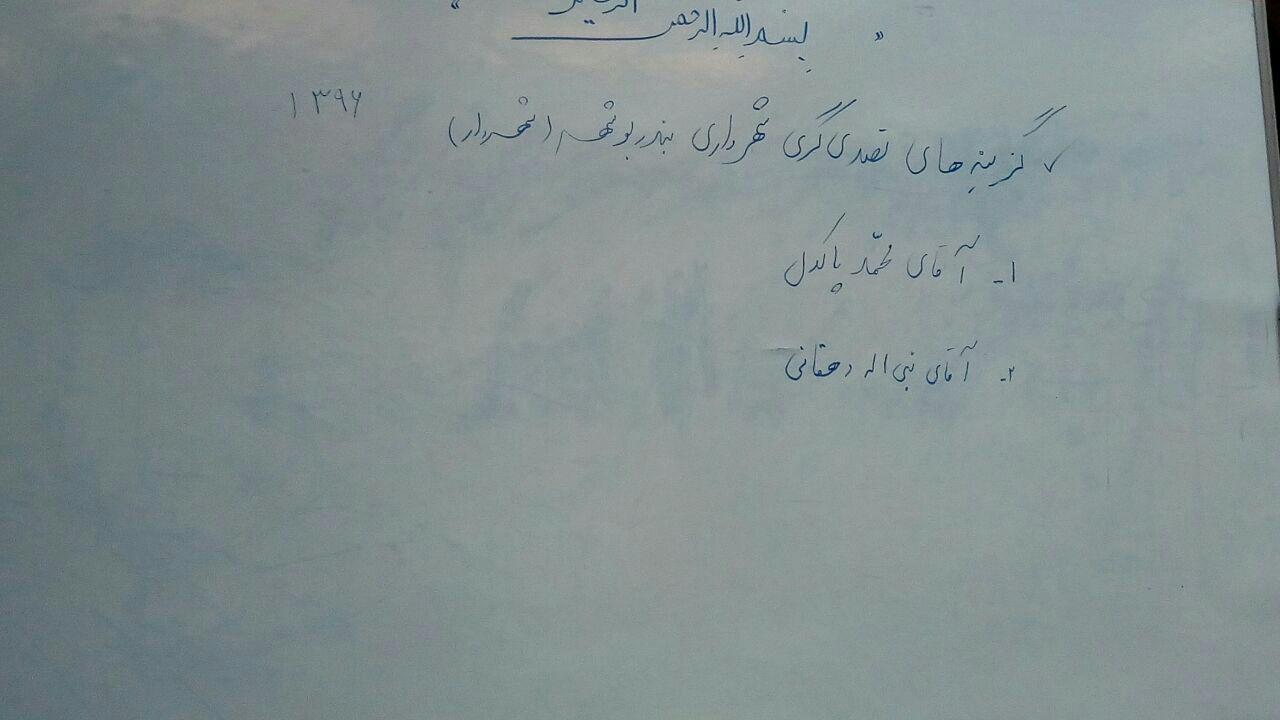 " بسم الله الرحمن الرحیم "
۱۳۹۶
✓ گزینه های تصدی گری شهرداری بندر بوشهر (شهردار)
۱- آقای محمّد پاکدل
۲- آقای نبی اله دهقانی